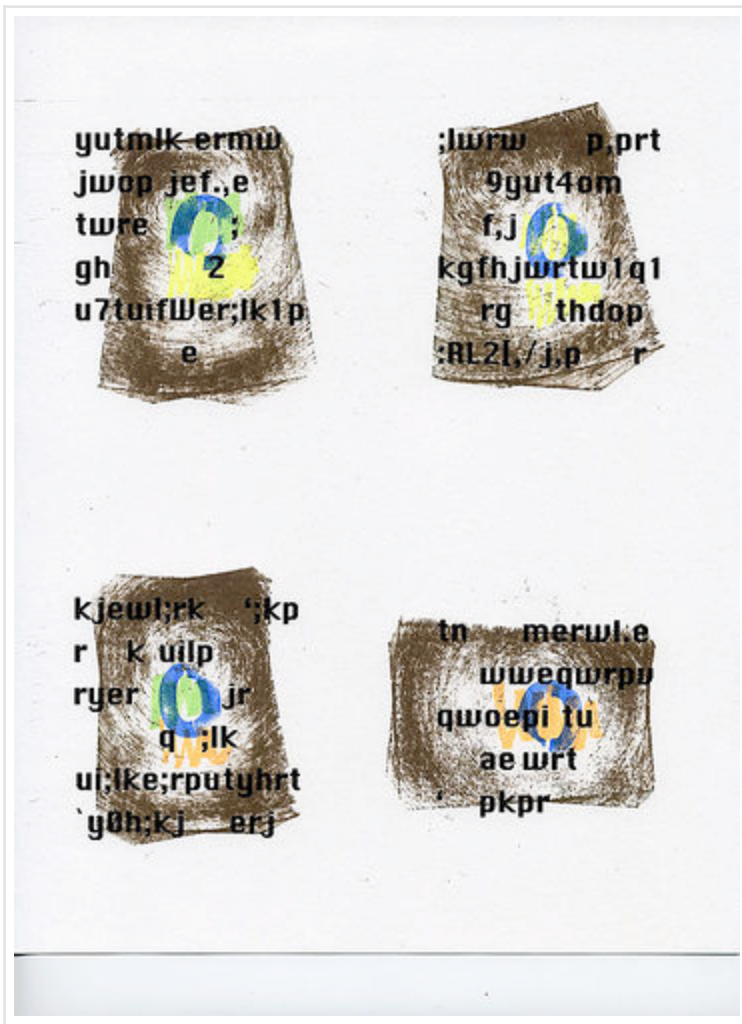 yutmlk ermw
jwop jef.,e
twre ;
gh 2
u7tuifWer;lk1p
e
;lwrw p,prt
9yut4om
f,j
kgfhjwrtw1q1
rg thdop
:RL2[,/j,p r
kjewl;rk ‘;kp
r k uilp
ryer jr
q ;lk
ui;lke;rputyhrt
`y0h;kj erj
tn merwl.e
wweqwrpw
qwoepi tu
ae wrt
‘ pkpr